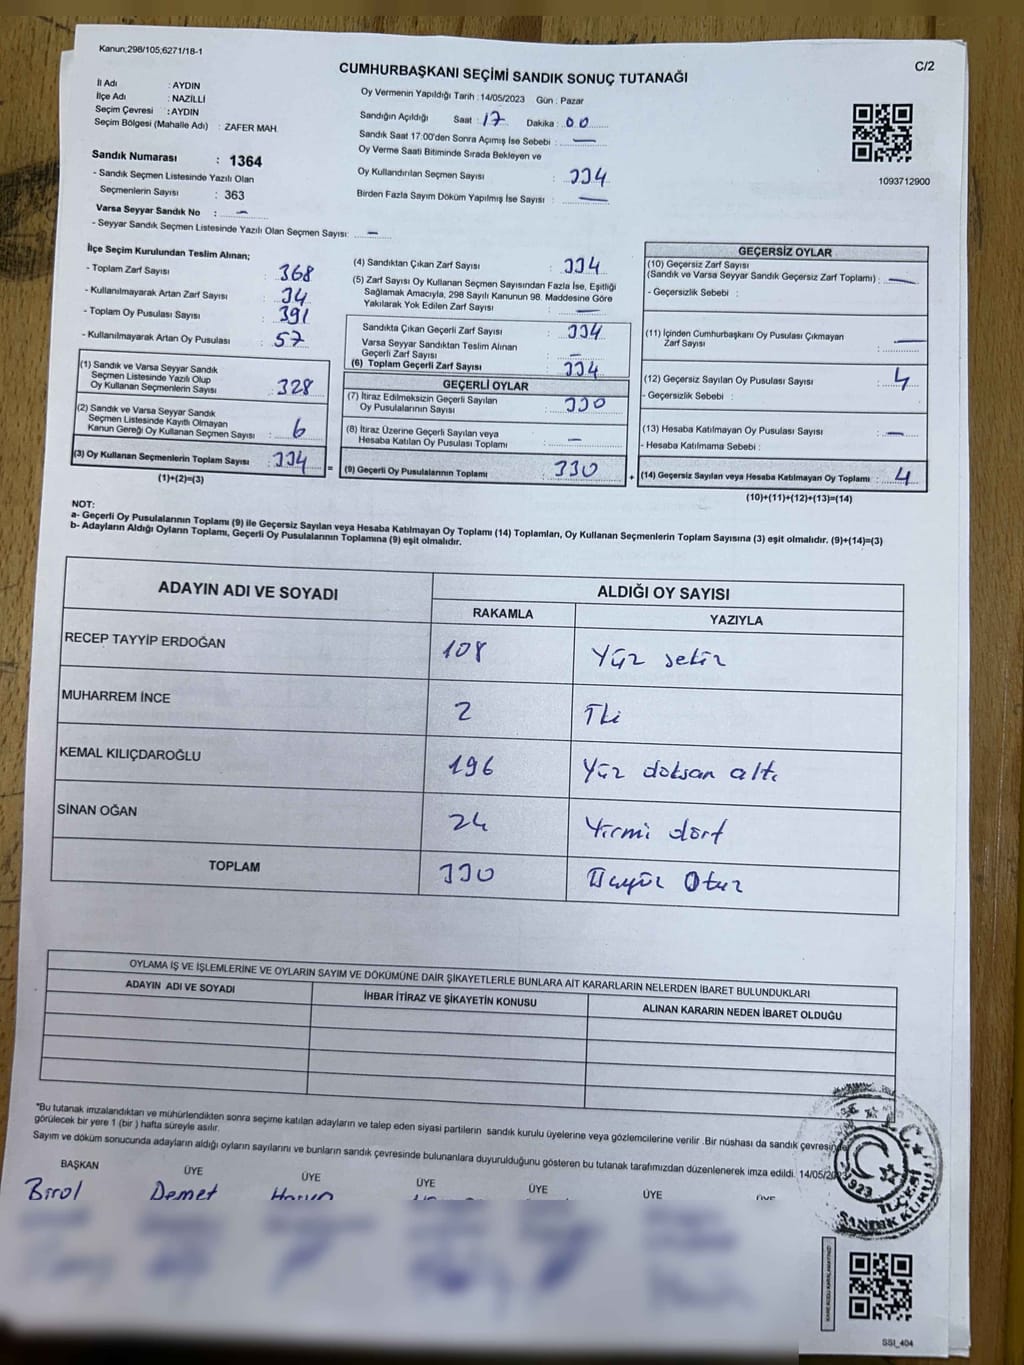 Kanun;298/105;6271/18-1
C/2
CUMHURBAŞKANI SEÇİMİ SANDIK SONUÇ TUTANAĞI
İl Adı : AYDIN
İlçe Adı : NAZİLLİ
Seçim Çevresi : AYDIN
Seçim Bölgesi (Mahalle Adı) : ZAFER MAH.
Sandık Numarası : 1364
- Sandık Seçmen Listesinde Yazılı Olan
Seçmenlerin Sayısı : 363
Varsa Seyyar Sandık No : —
- Seyyar Sandık Seçmen Listesinde Yazılı Olan Seçmen Sayısı: —
Oy Vermenin Yapıldığı Tarih : 14/05/2023 Gün : Pazar
Sandığın Açıldığı Saat : 17 Dakika : 00
Sandık Saat 17:00'den Sonra Açımış İse Sebebi : —
Oy Verme Saati Bitiminde Sırada Bekleyen ve
Oy Kullandırılan Seçmen Sayısı : 334
Birden Fazla Sayım Döküm Yapılmış İse Sayısı : —
1093712900
İlçe Seçim Kurulundan Teslim Alınan;
- Toplam Zarf Sayısı : 368
- Kullanılmayarak Artan Zarf Sayısı : 34
- Toplam Oy Pusulası Sayısı : 391
- Kullanılmayarak Artan Oy Pusulası : 57
(1) Sandık ve Varsa Seyyar Sandık
Seçmen Listesinde Yazılı Olup
Oy Kullanan Seçmenlerin Sayısı : 328
(2) Sandık ve Varsa Seyyar Sandık
Seçmen Listesinde Kayıtlı Olmayan
Kanun Gereği Oy Kullanan Seçmen Sayısı : 6
(3) Oy Kullanan Seçmenlerin Toplam Sayısı : 334
(1)+(2)=(3)
(4) Sandıktan Çıkan Zarf Sayısı : 334
(5) Zarf Sayısı Oy Kullanan Seçmen Sayısından Fazla İse, Eşitliği
Sağlamak Amacıyla, 298 Sayılı Kanunun 98. Maddesine Göre
Yakılarak Yok Edilen Zarf Sayısı : —
Sandıkta Çıkan Geçerli Zarf Sayısı : 334
Varsa Seyyar Sandıktan Teslim Alınan
Geçerli Zarf Sayısı : —
(6) Toplam Geçerli Zarf Sayısı : 334
GEÇERLİ OYLAR
(7) İtiraz Edilmeksizin Geçerli Sayılan
Oy Pusulalarının Sayısı : 330
(8) İtiraz Üzerine Geçerli Sayılan veya
Hesaba Katılan Oy Pusulası Toplamı : —
= (9) Geçerli Oy Pusulalarının Toplamı : 330 +
GEÇERSİZ OYLAR
(10) Geçersiz Zarf Sayısı
(Sandık ve Varsa Seyyar Sandık Geçersiz Zarf Toplamı) : —
- Geçersizlik Sebebi :
(11) İçinden Cumhurbaşkanı Oy Pusulası Çıkmayan
Zarf Sayısı : —
(12) Geçersiz Sayılan Oy Pusulası Sayısı : 4
- Geçersizlik Sebebi :
(13) Hesaba Katılmayan Oy Pusulası Sayısı : —
- Hesaba Katılmama Sebebi :
(14) Geçersiz Sayılan veya Hesaba Katılmayan Oy Toplamı : 4
(10)+(11)+(12)+(13)=(14)
NOT:
a- Geçerli Oy Pusulalarının Toplamı (9) ile Geçersiz Sayılan veya Hesaba Katılmayan Oy Toplamı (14) Toplamları, Oy Kullanan Seçmenlerin Toplam Sayısına (3) eşit olmalıdır. (9)+(14)=(3)
b- Adayların Aldığı Oyların Toplamı, Geçerli Oy Pusulalarının Toplamına (9) eşit olmalıdır.
ADAYIN ADI VE SOYADI ALDIĞI OY SAYISI
RAKAMLA YAZIYLA
RECEP TAYYİP ERDOĞAN 108 Yüz sekiz
MUHARREM İNCE 2 İki
KEMAL KILIÇDAROĞLU 196 Yüz doksan altı
SİNAN OĞAN 24 Yirmi dört
TOPLAM 330 Üçyüz Otuz
OYLAMA İŞ VE İŞLEMLERİNE VE OYLARIN SAYIM VE DÖKÜMÜNE DAİR ŞİKAYETLERLE BUNLARA AİT KARARLARIN NELERDEN İBARET BULUNDUKLARI
ADAYIN ADI VE SOYADI İHBAR İTİRAZ VE ŞİKAYETİN KONUSU ALINAN KARARIN NEDEN İBARET OLDUĞU
"Bu tutanak imzalandıktan ve mühürlendikten sonra seçime katılan adayların ve talep eden siyasi partilerin sandık kurulu üyelerine veya gözlemcilerine verilir .Bir nüshası da sandık çevresinde
görülecek bir yere 1 (bir ) hafta süreyle asılır.
Sayım ve döküm sonucunda adayların aldığı oyların sayılarını ve bunların sandık çevresinde bulunanlara duyurulduğunu gösteren bu tutanak tarafımızdan düzenlenerek imza edildi. 14/05/20
BAŞKAN ÜYE ÜYE ÜYE ÜYE ÜYE ÜYE
Birol Demet Harun
T.C.
1923
İLÇESİ
SANDIK KURULU
SSI_404